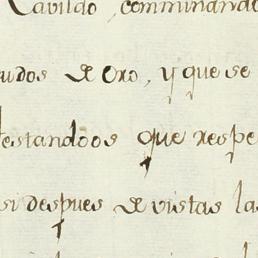 Cavildo, comminando
udos de Oro, y que se
estandoos que respe
si despues de vistas las